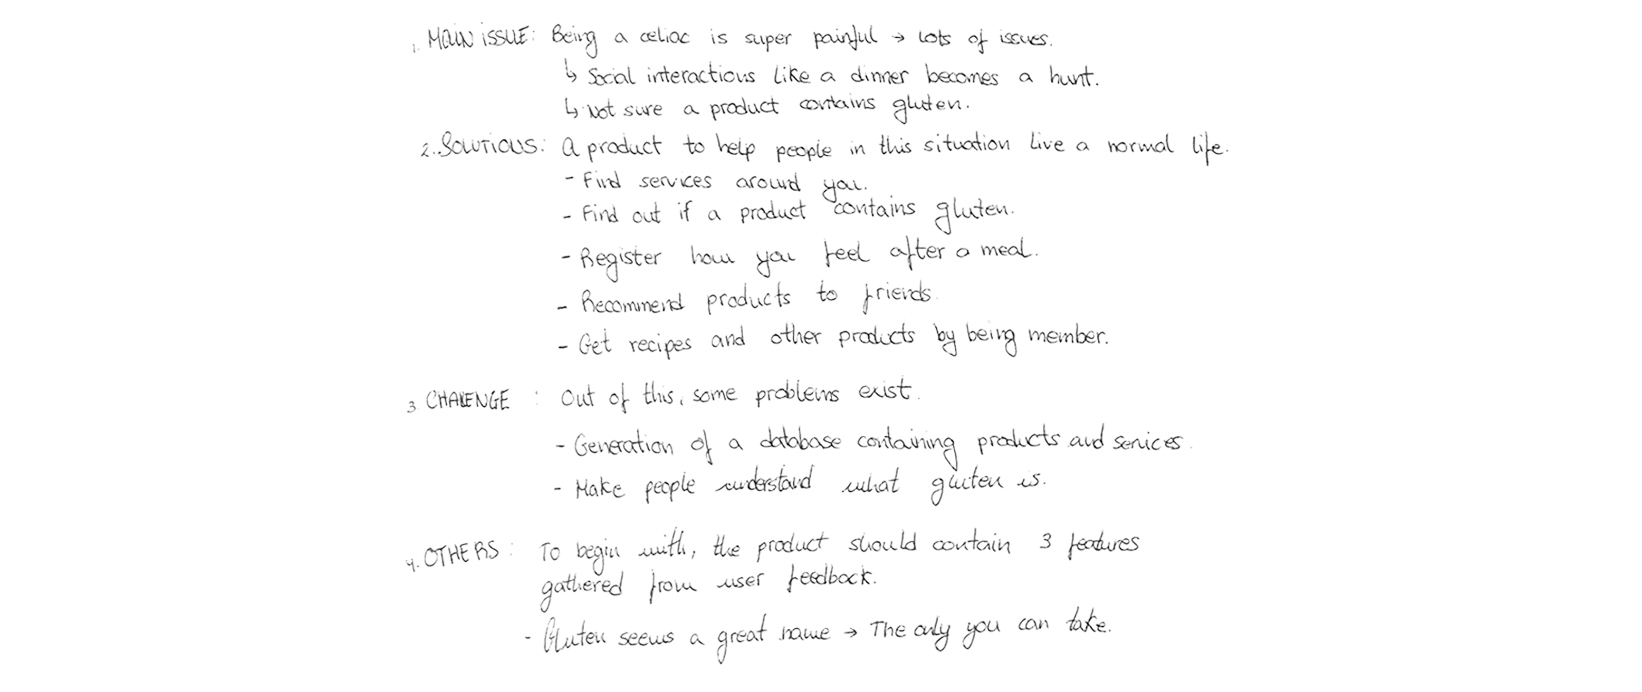 1. MAIN ISSUE: Being a celiac is super painful → Lots of issues.
↳ Social interactions like a dinner becomes a hunt.
↳ Not sure a product contains gluten.
2. SOLUTIONS: A product to help people in this situation live a normal life.
- Find services around you.
- Find out if a product contains gluten.
- Register how you feel after a meal.
- Recommend products to friends.
- Get recipes and other products by being member.
3 CHALENGE : Out of this, some problems exist.
- Generation of a database containing products and services.
- Make people understand what gluten is.
4. OTHERS: To begin with, the product should contain 3 features
gathered from user feedback.
- Gluten seems a great name → The only you can take.